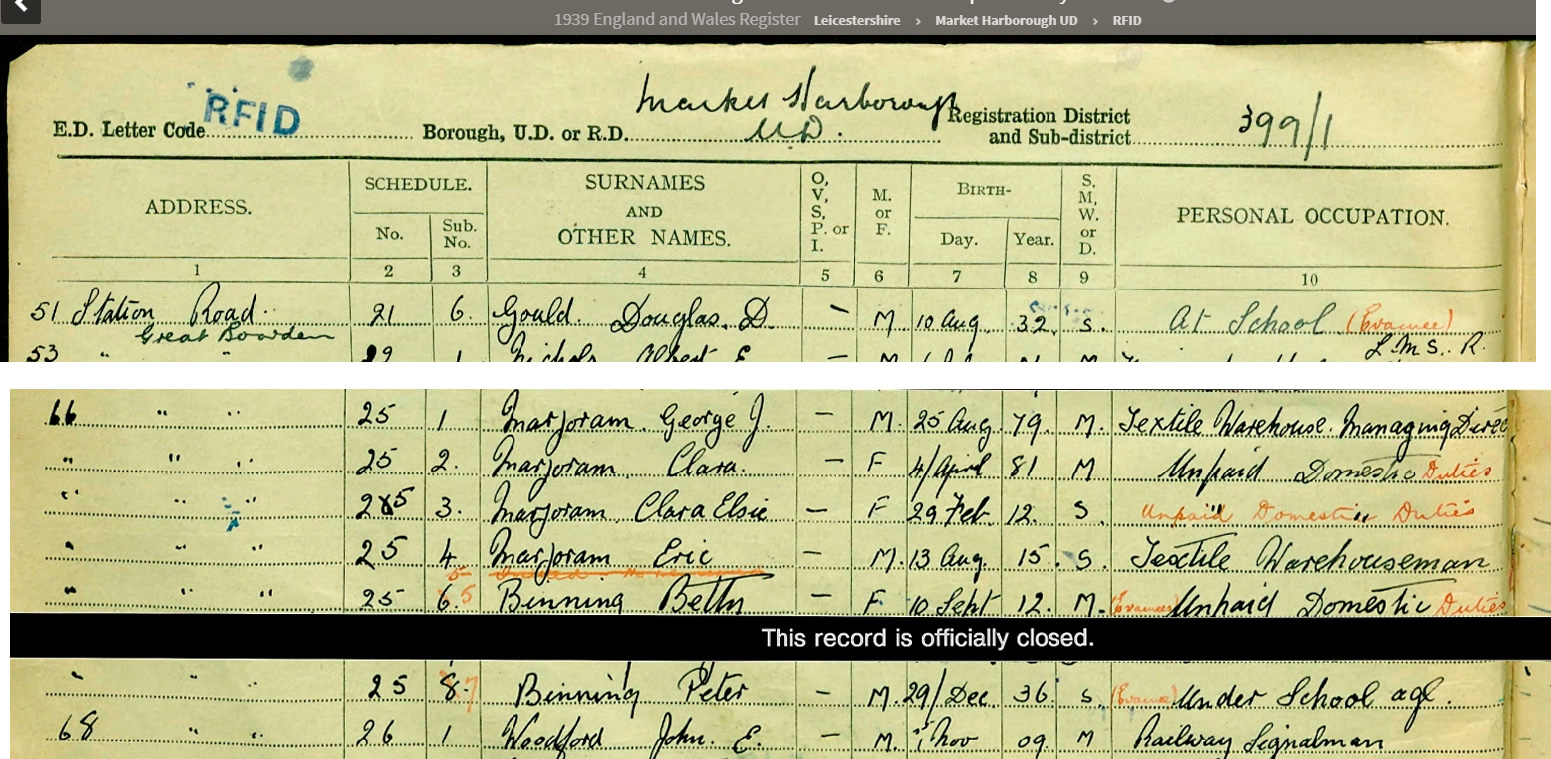 1939 England and Wales Register Leicestershire > Market Harborough UD > RFID
RFID
E.D. Letter Code Borough, U.D. or R.D. Market Harborough U.D. Registration District and Sub-district 399/1
ADDRESS. SCHEDULE. No. Sub. No. SURNAMES AND OTHER NAMES. O, V, S, P. or I. M. or F. BIRTH- Day. Year. S, M, W. or D. PERSONAL OCCUPATION.
1 2 3 4 5 6 7 8 9 10
51 Station Road 21 6. Gould. Douglas. D. — M 10 Aug 32 S. At School (Evacuee)
Great Bowden
53 " " 22 1 Nichols Albert E. — M M L.M.S. R.
66 " " 25 1 Marjoram. George J. — M. 25 Aug 79. M. Textile Warehouse. Managing Direc
" " " 25 2. Marjoram Clara. — F 4/April 81 M Unpaid Domestic Duties
" " " 25 3. Marjoram Clara Elsie — F 29 Feb 12. S. Unpaid Domestic Duties
" " " 25 4. Marjoram Eric — M. 13 Aug. 15. S. Textile Warehouseman
" " " 25 6. 5 Binning Betty — F. 10 Sept 12. M. (Evacuee) Unpaid Domestic Duties
This record is officially closed.
" " " 25 8. 7 Binning Peter — M. 29/Dec 36. S. (Evacuee) Under School age.
68 " " 26 1 Woodford John. E. — M. Nov 09 M Railway Signalman